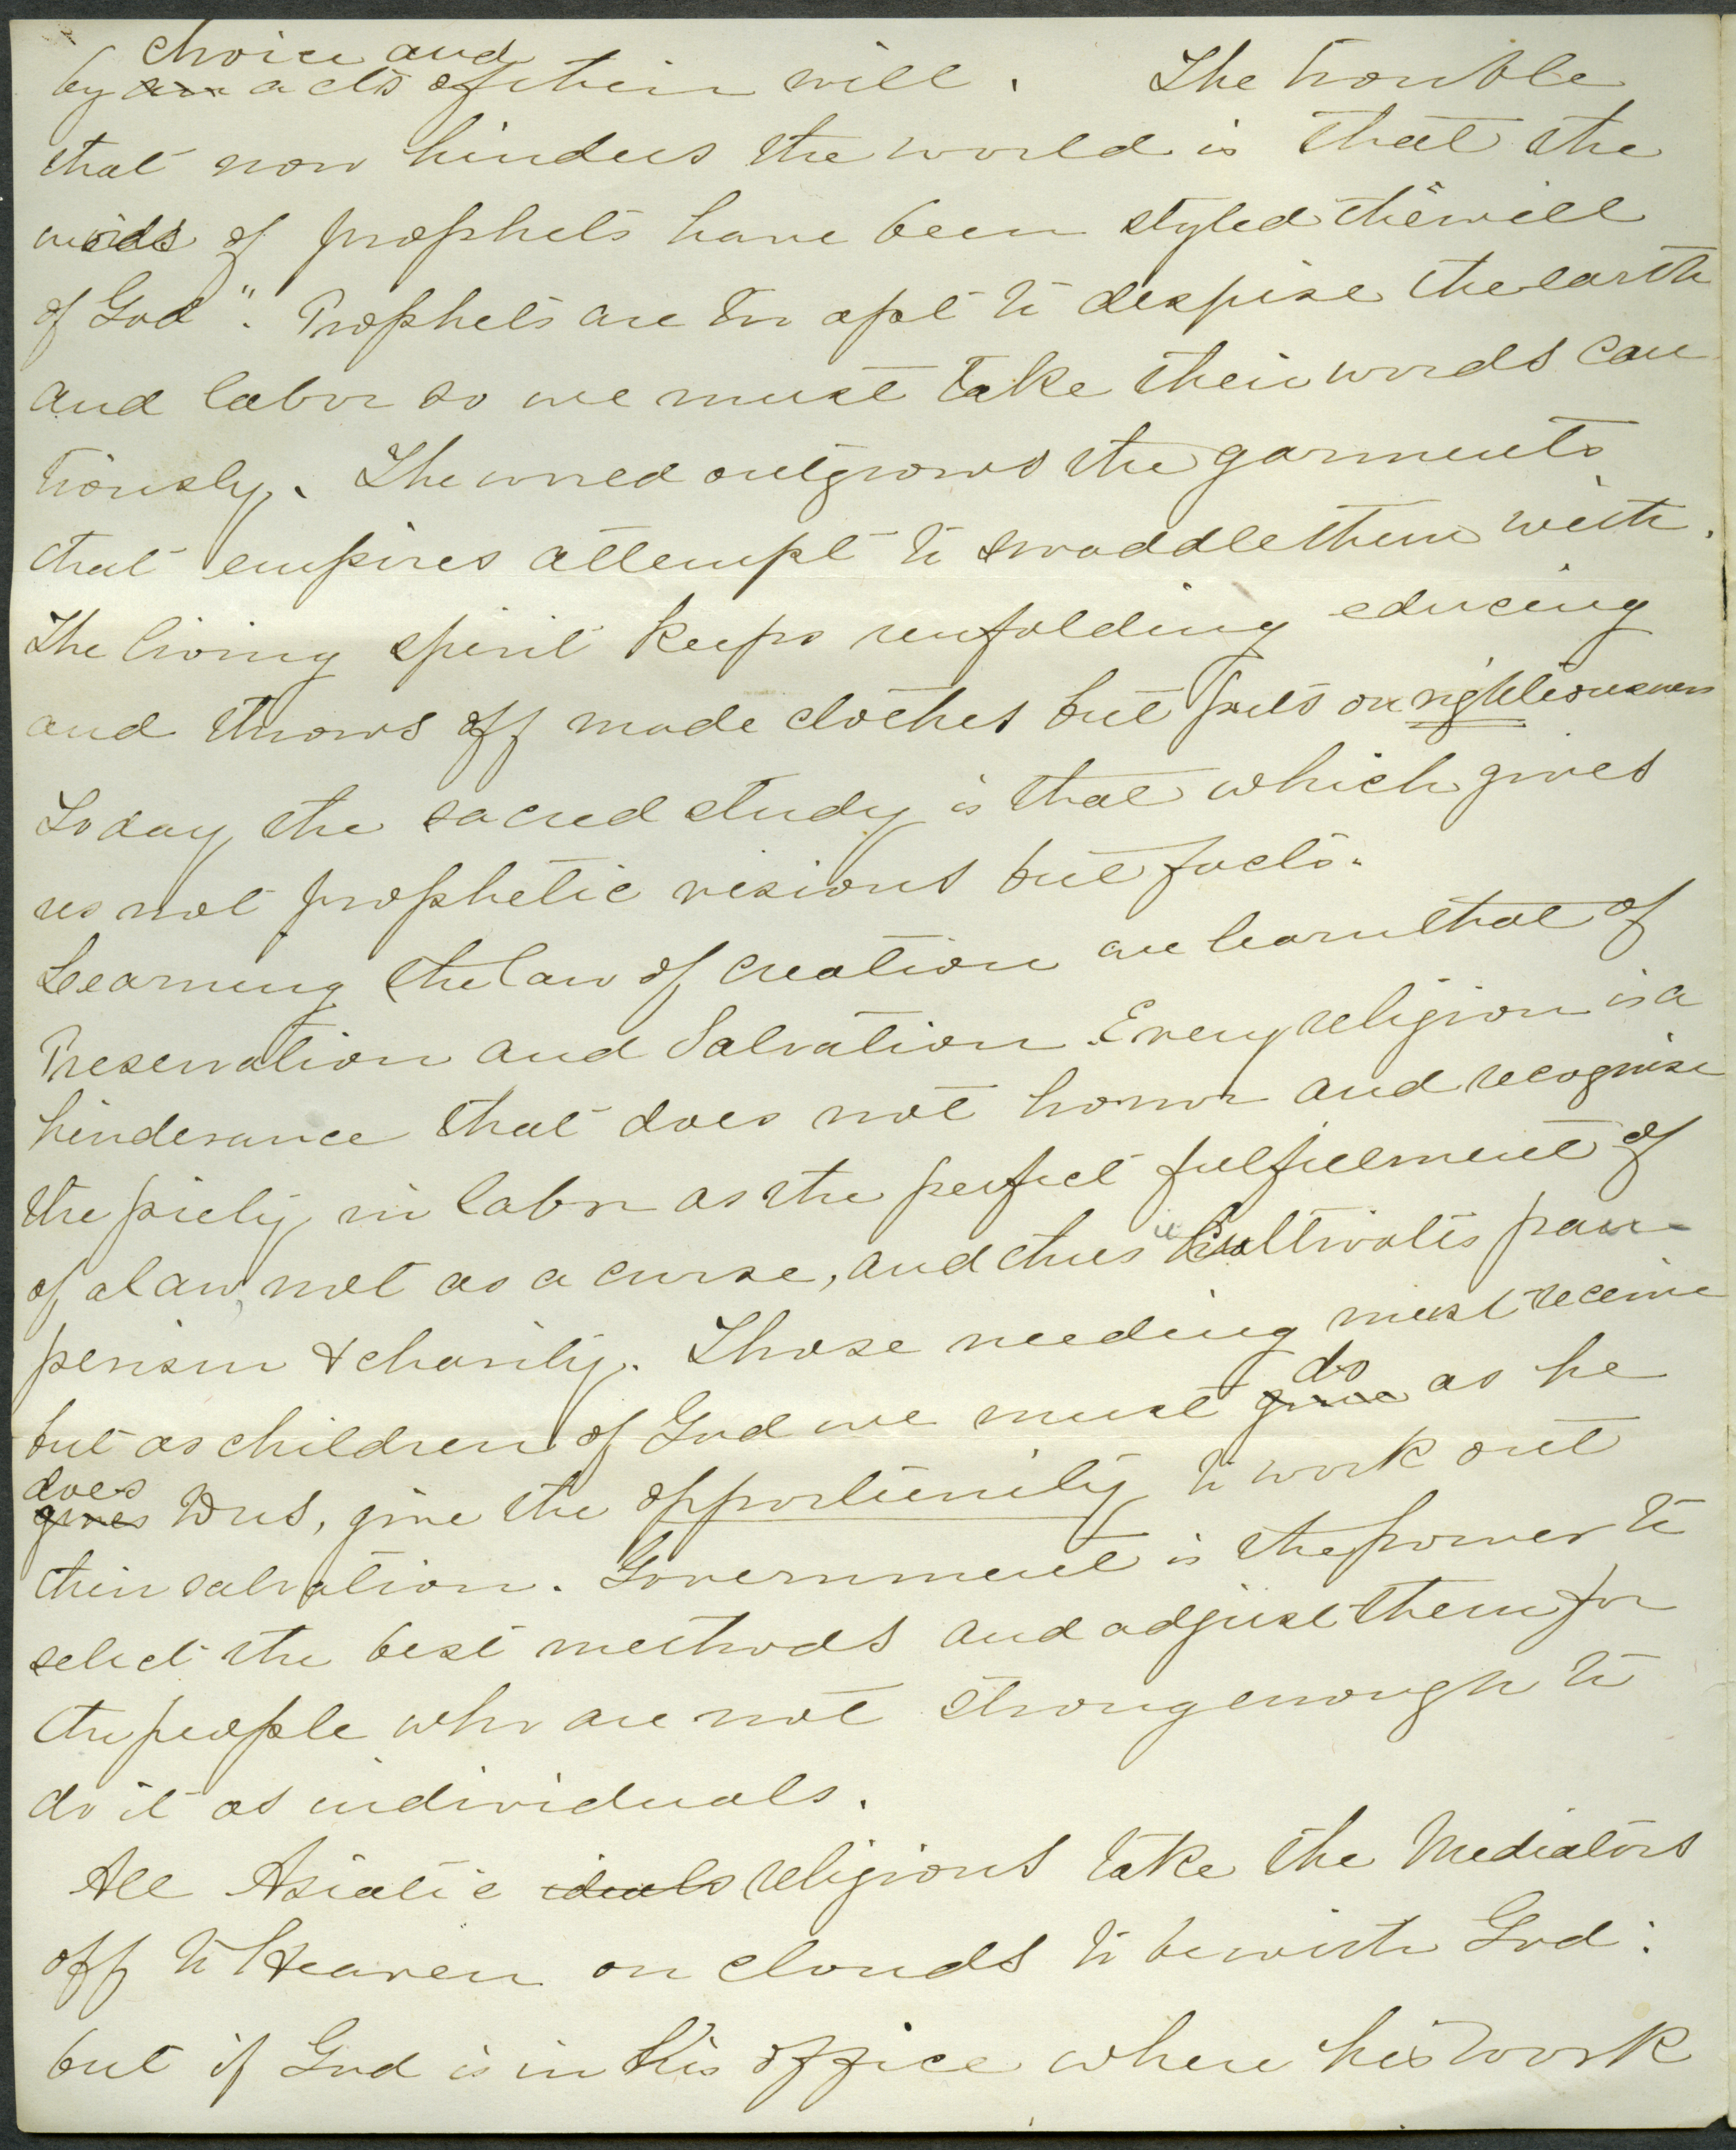 choice and
by an acts of their will. The trouble
that now hinders the world is that the
words of prophets have been styled the "will
of God". Prophets are too apt to despise the earth
and labor so we must take their words cau
tiously. The world outgrows the garments
that empires attempt to swaddle them with.
The living spirit keeps unfolding educing
and throws off made clothes but puts on righteousness
Today the sacred study is that which gives
us not prophetic visions but facts.
Learning the law of creation we learn that of
Preservation and Salvation. Every religion is a
hinderance that does not honor and recognise
the piety in labor as the perfect fulfillment of
of a law, not as a curse, and thus it cultivates pau-
perism & charity. Those needing must receive
do
but as children of God we must give as he
does
gives to us, give the opportunity to work out
their salvation. Government is the power to
select the best methods and adjust them for
the people who are not strong enough to
do it as individuals.
All Asiatic ideals religions take the Mediators
off to Heaven on clouds to be with God:
but if God is in his office where his work